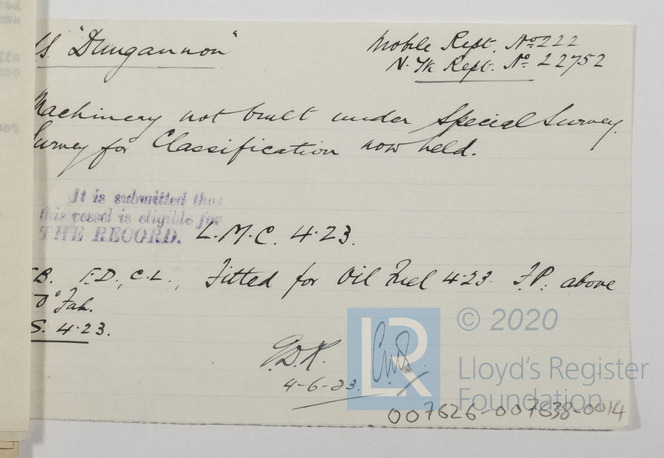 "Dungannon"
Mobile Rept. No 222
N. Yk Rept. No 22752
Machinery not built under Special Survey.
Survey for Classification now held.
It is submitted that
this vessel is eligible for
THE RECORD. L.M.C. 4.23.
F.D., C.L., Fitted for Oil Fuel 4.23. F.P. above
Fah.
S. 4.23.
4-6-23.
© 2020
LR
Lloyd's Register
Foundation
007626-007838-0014